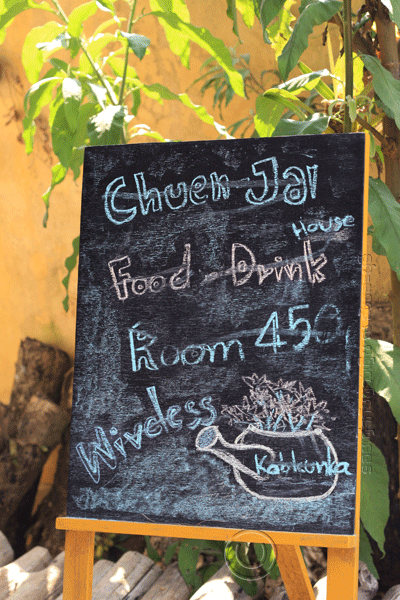 Chuen Jai
House
Food - Drink
Room 450
Wireless
Kabkunka